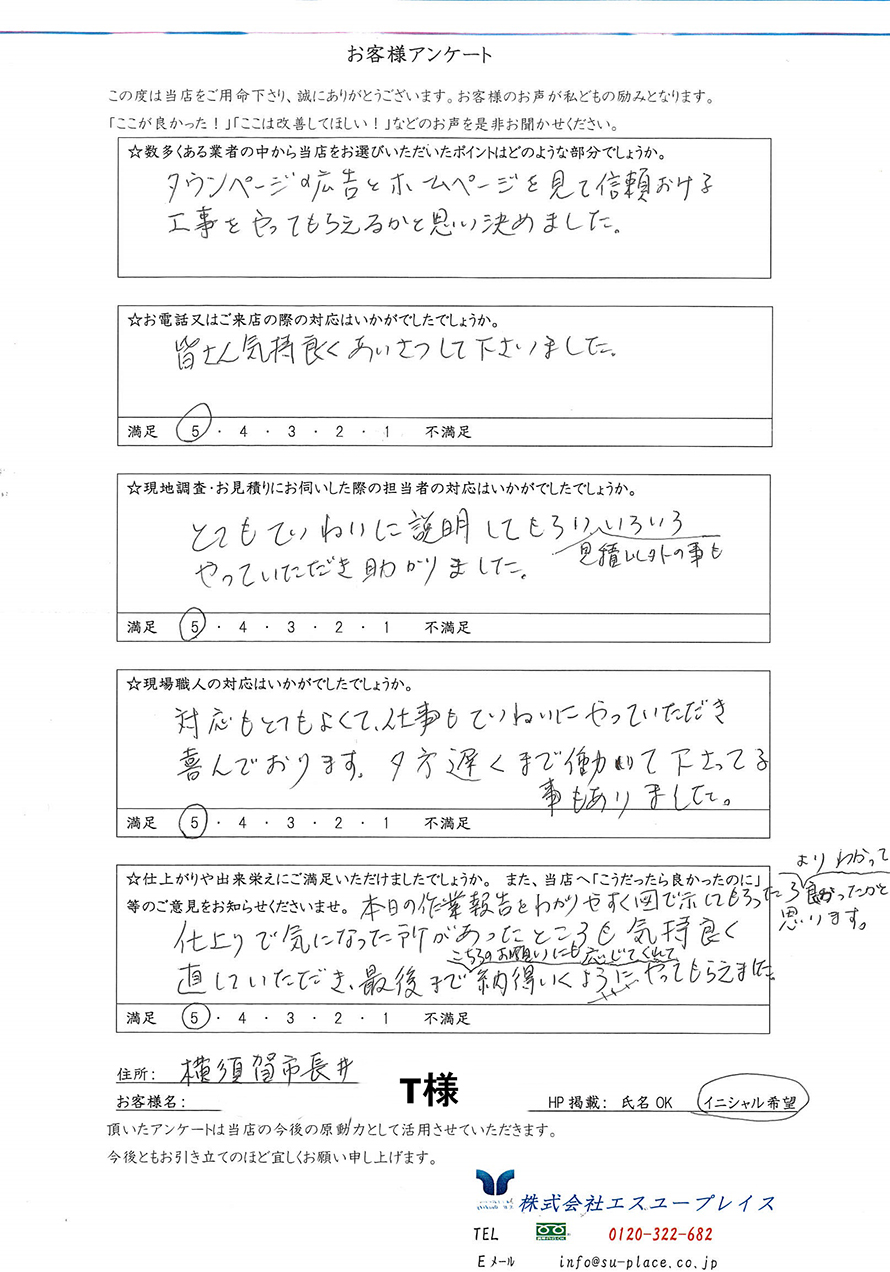 お客様アンケート
この度は当店をご用命下さり、誠にありがとうございます。お客様のお声が私どもの励みとなります。
「ここが良かった！」「ここは改善してほしい！」などのお声を是非お聞かせください。
☆数多くある業者の中から当店をお選びいただいたポイントはどのような部分でしょうか。
タウンページの広告とホームページを見て信頼おける
工事をやってもらえるかと思い決めました。
☆お電話又はご来店の際の対応はいかがでしたでしょうか。
皆さん気持良くあいさつして下さいました。
満足 5 ・ 4 ・ 3 ・ 2 ・ 1 不満足
☆現地調査・お見積りにお伺いした際の担当者の対応はいかがでしたでしょうか。
とてもていねいに説明してもらい、いろいろ
見積り以外の事も
やっていただき助かりました。
満足 5 ・ 4 ・ 3 ・ 2 ・ 1 不満足
☆現場職人の対応はいかがでしたでしょうか。
対応もとてもよくて、仕事もていねいにやっていただき
喜んでおります。夕方遅くまで働いて下さってる
事もありました。
満足 5 ・ 4 ・ 3 ・ 2 ・ 1 不満足
☆仕上がりや出来栄えにご満足いただけましたでしょうか。 また、当店へ「こうだったら良かったのに」
等のご意見をお知らせくださいませ。本日の作業報告とわかりやすく図で示してもらったら良かったかと
よりわかって
思います。
仕上りで気になった所があったところも気持良く
こちらのお願いにも応じてくれて
直していただき、最後まで納得いくようにやってもらえました。
満足 5 ・ 4 ・ 3 ・ 2 ・ 1 不満足
住所： 横須賀市長井
お客様名： T様 HP掲載： 氏名OK イニシャル希望
頂いたアンケートは当店の今後の原動力として活用させていただきます。
今後ともお引き立てのほど宜しくお願い申し上げます。
株式会社エスユープレイス
TEL 0120-322-682
Eメール info@su-place.co.jp